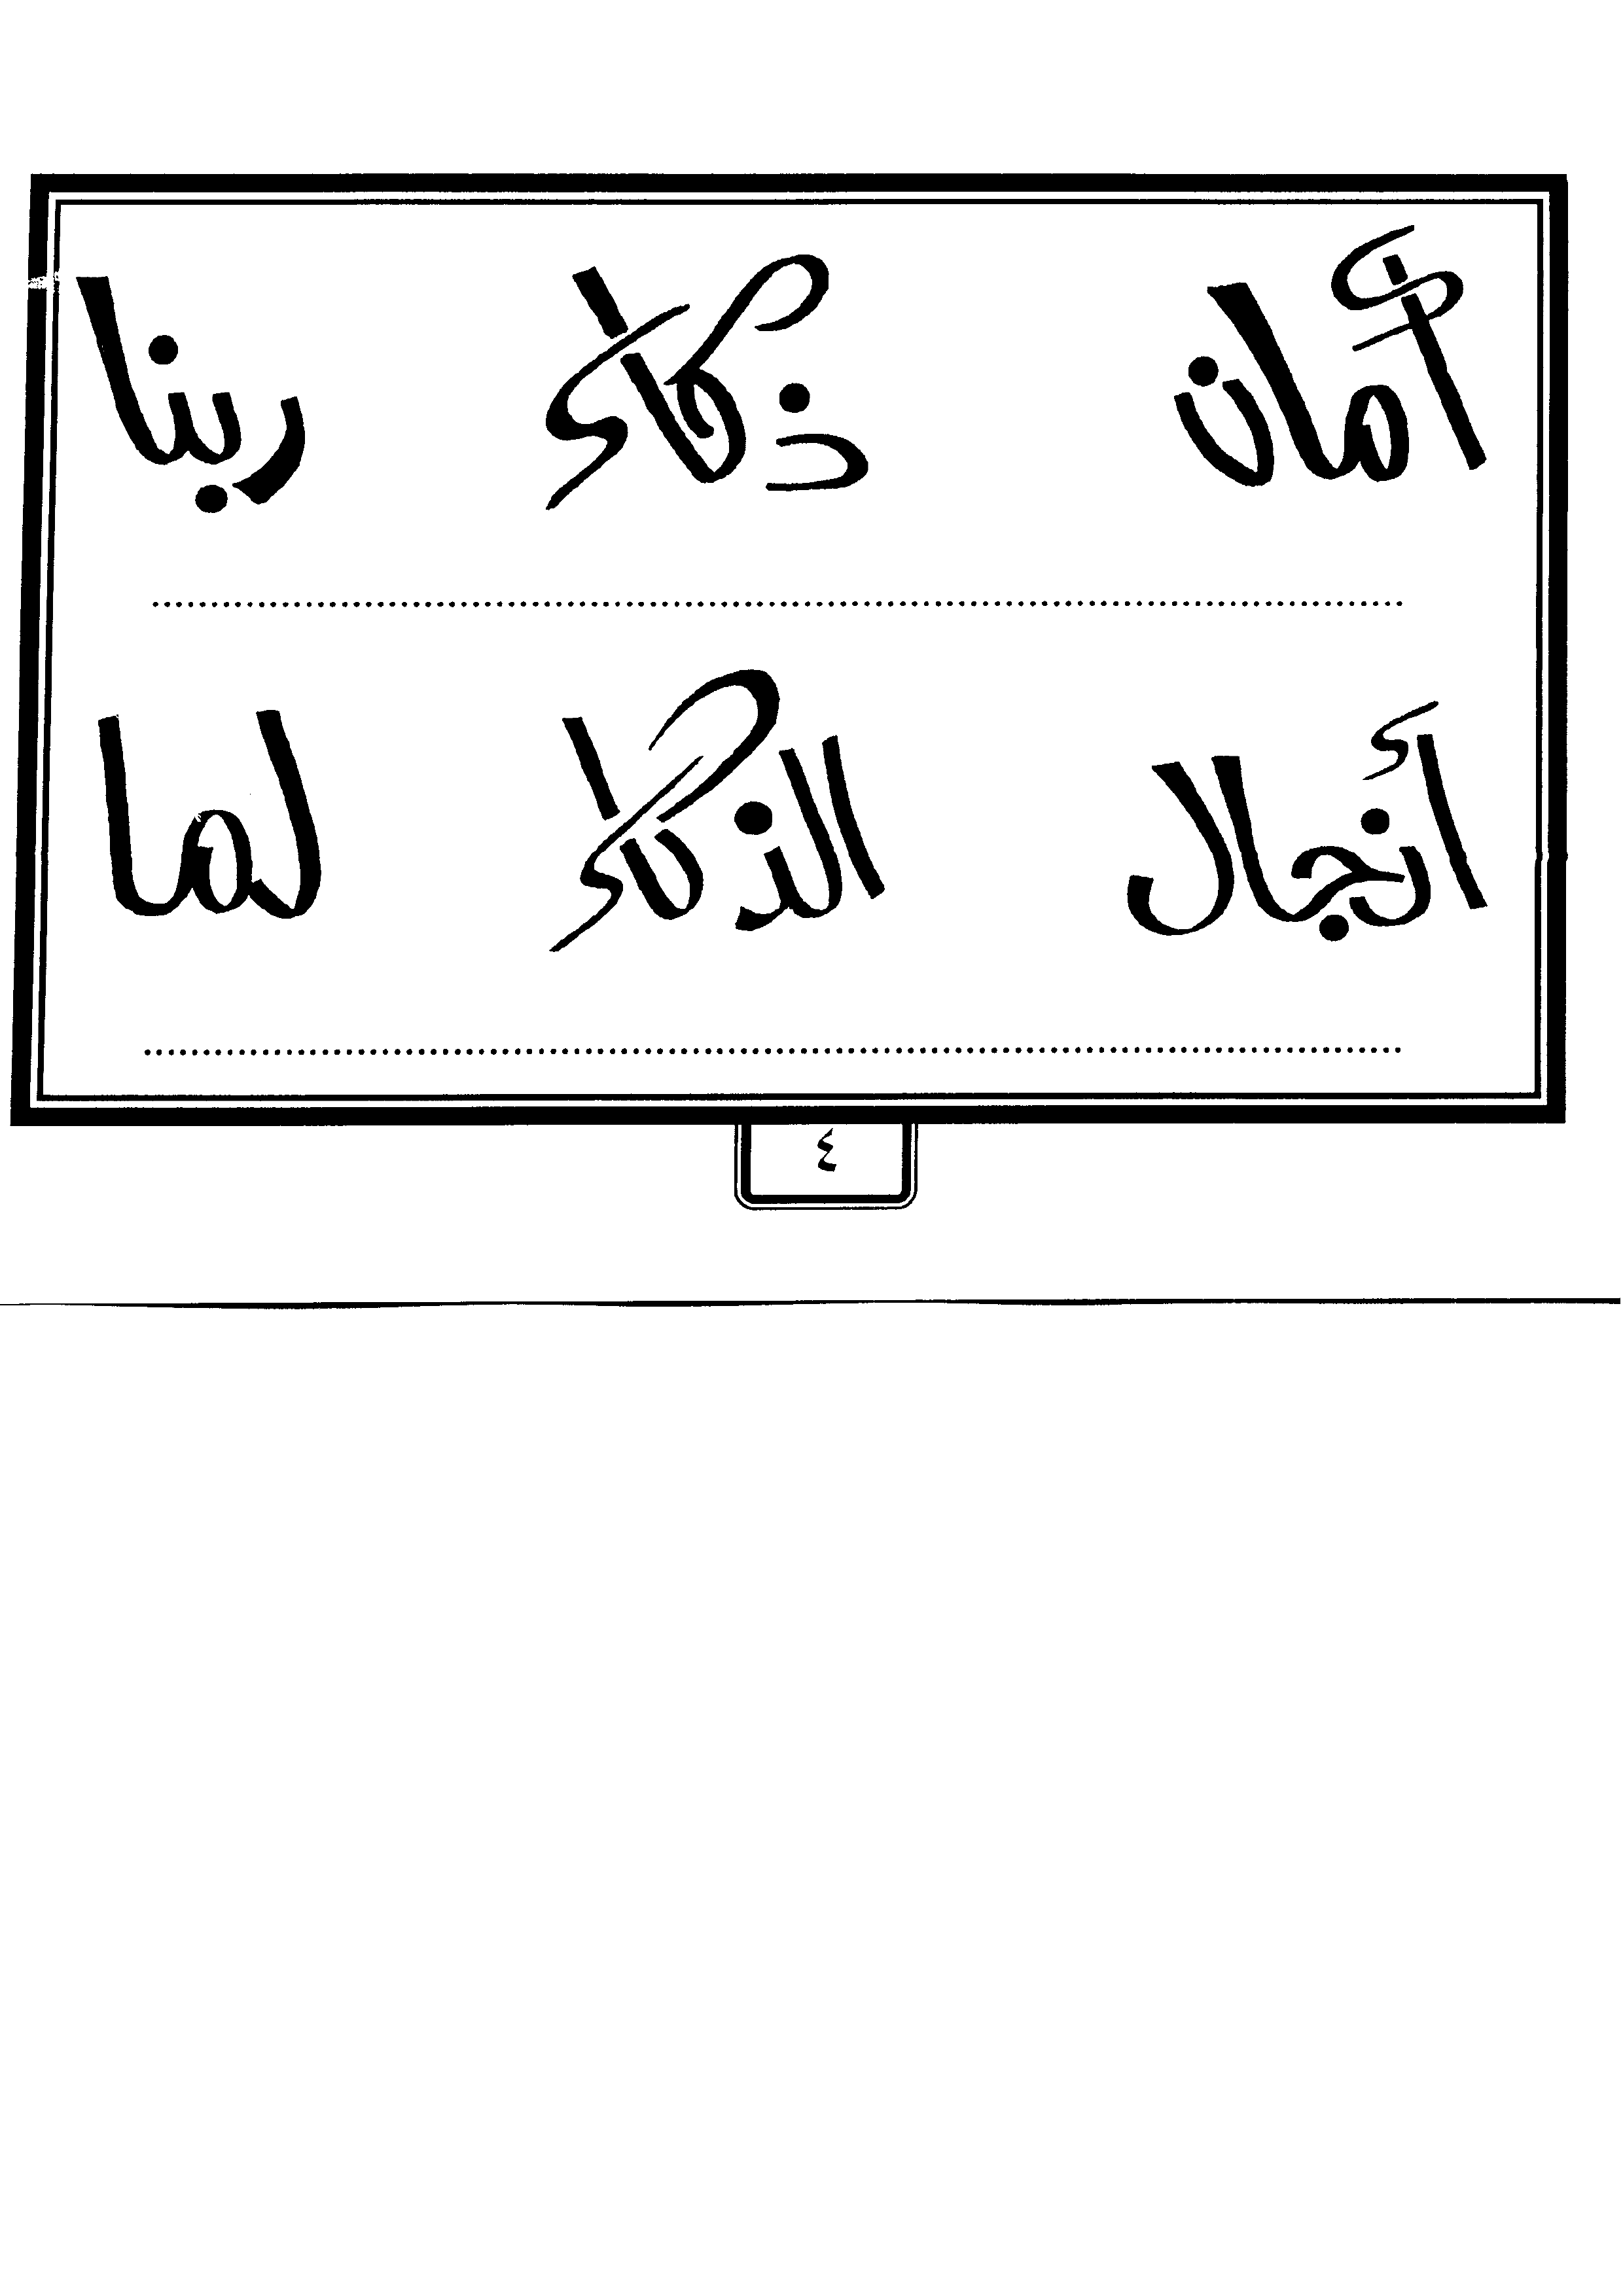 أمان ذكاء رينا
أنجال الذكاء لما
٤